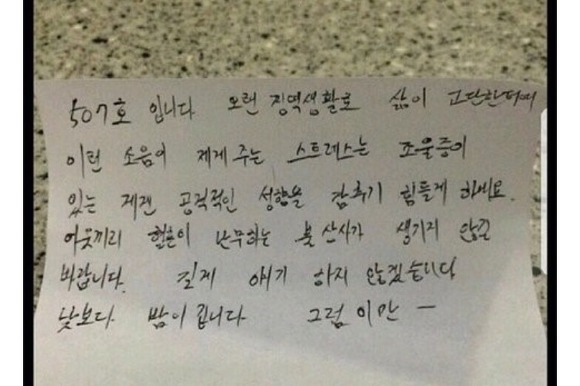 507호 입니다 오랜 징역생활로 삶이 고단한데
이런 소음이 제게 주는 스트레스는 조울증이
있는 제겐 공격적인 성향을 감추기 힘들게 하네요.
이웃끼리 혈흔이 난무하는 불산사가 생기지 않길
바랍니다. 길게 얘기 하지 않겠습니다
낮보다 밤이 깁니다 그럼 이만 ㅡ